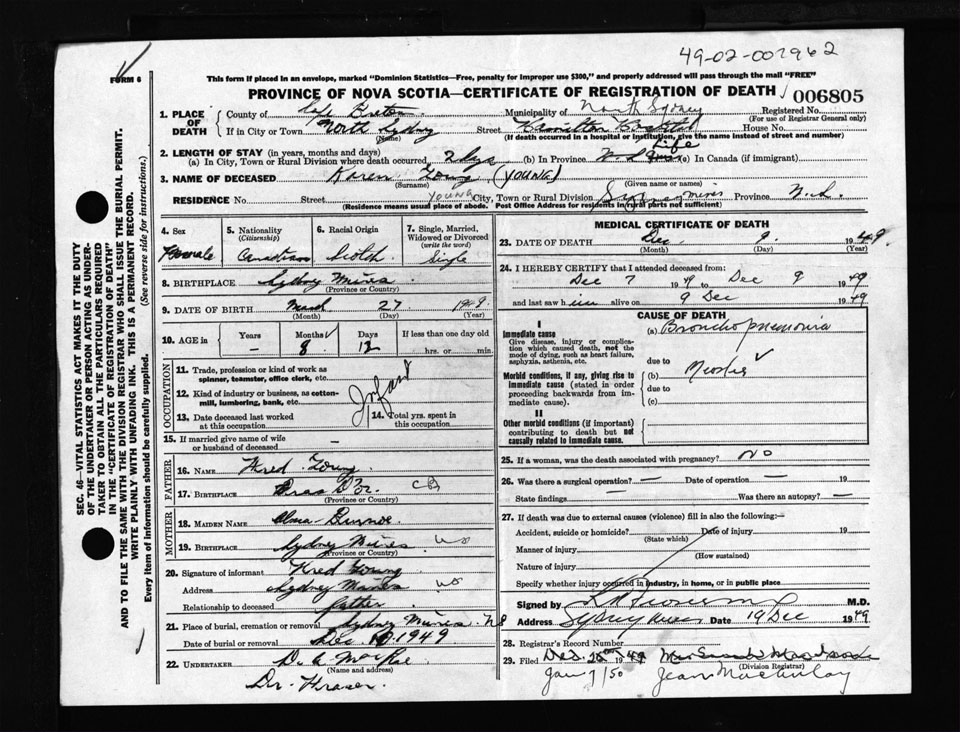 49-02-002962
FORM 6
This form if placed in an envelope, marked "Dominion Statistics—Free, penalty for improper use $300," and properly addressed will pass through the mail "FREE"
PROVINCE OF NOVA SCOTIA—CERTIFICATE OF REGISTRATION OF DEATH 006805
1. PLACE OF DEATH
County of Cape Breton Municipality of North Sydney Registered No.
(For use of Registrar General only)
If in City or Town North Sydney Street Hamilton Hospital House No.
(Name) (If death occurred in a hospital or institution, give the name instead of street and number)
2. LENGTH OF STAY (in years, months and days)
(a) In City, Town or Rural Division where death occurred 2 dys (b) In Province Life (c) In Canada (if immigrant)
3. NAME OF DECEASED Karen Young (YOUNG)
(Surname) (Given name or names)
RESIDENCE No. Street YOUNG City, Town or Rural Division Sydney Mines Province N.S.
(Residence means usual place of abode. Post Office Address for residents in rural parts not sufficient)
4. Sex
Female
5. Nationality
(Citizenship)
Canadian
6. Racial Origin
Scotch
7. Single, Married, Widowed or Divorced
(write the word)
Single
8. BIRTHPLACE Sydney Mines
(Province or Country)
9. DATE OF BIRTH March 27 1949
(Month) (Day) (Year)
10. AGE in
Years Months Days If less than one day old
– 8 12 hrs. or min.
OCCUPATION
11. Trade, profession or kind of work as
spinner, teamster, office clerk, etc.
12. Kind of industry or business, as cotton-
mill, lumbering, bank, etc.
Infant
13. Date deceased last worked
at this occupation
14. Total yrs. spent in
this occupation
15. If married give name of wife
or husband of deceased –
FATHER
16. NAME Fred Young
17. BIRTHPLACE Bras D'Or CB
(Province or Country)
MOTHER
18. MAIDEN NAME Alma
19. BIRTHPLACE Sydney Mines NS
(Province or Country)
20. Signature of informant Fred Young
Address Sydney Mines NS
Relationship to deceased father
21. Place of burial, cremation or removal Sydney Mines NS
Date of burial or removal Dec. 10 1949
22. UNDERTAKER D. A. McRae
(Name and address)
Dr. Fraser.
MEDICAL CERTIFICATE OF DEATH
23. DATE OF DEATH Dec 9 1949
(Month) (Day) (Year)
24. I HEREBY CERTIFY that I attended deceased from:
Dec 7 1949 to Dec 9 1949
and last saw h im alive on 9 Dec 1949
CAUSE OF DEATH
I
Immediate cause
Give disease, injury or complica-
tion which caused death, not the
mode of dying, such as heart failure,
asphyxia, asthenia, etc.
(a) Broncho pneumonia
due to
Morbid conditions, if any, giving rise to
immediate cause (stated in order
proceeding backwards from im-
mediate cause).
(b) Measles
due to
(c)
II
Other morbid conditions (if important)
contributing to death but not
causally related to immediate cause.
25. If a woman, was the death associated with pregnancy? NO
26. Was there a surgical operation? – Date of operation – 19
State findings – Was there an autopsy? –
27. If death was due to external causes (violence) fill in also the following:—
Accident, suicide or homicide? Date of injury 19
(State which)
Manner of injury
(How sustained)
Nature of injury
Specify whether injury occurred in industry, in home, or in public place
Signed by M.D.
Address Sydney Mines Date 19 Dec 1949
28. Registrar's Record Number
29. Filed Dec. 1949
(Division Registrar)
Jan 7/50 Jean MacAulay
SEC. 46—VITAL STATISTICS ACT MAKES IT THE DUTY
OF THE UNDERTAKER OR PERSON ACTING AS UNDER-
TAKER TO OBTAIN ALL THE PARTICULARS REQUIRED
IN THE "CERTIFICATE OF REGISTRATION OF DEATH"
AND TO FILE THE SAME WITH THE DIVISION REGISTRAR WHO SHALL ISSUE THE BURIAL PERMIT.
WRITE PLAINLY WITH UNFADING INK. THIS IS A PERMANENT RECORD.
Every item of information should be carefully supplied. (See reverse side for instructions.)